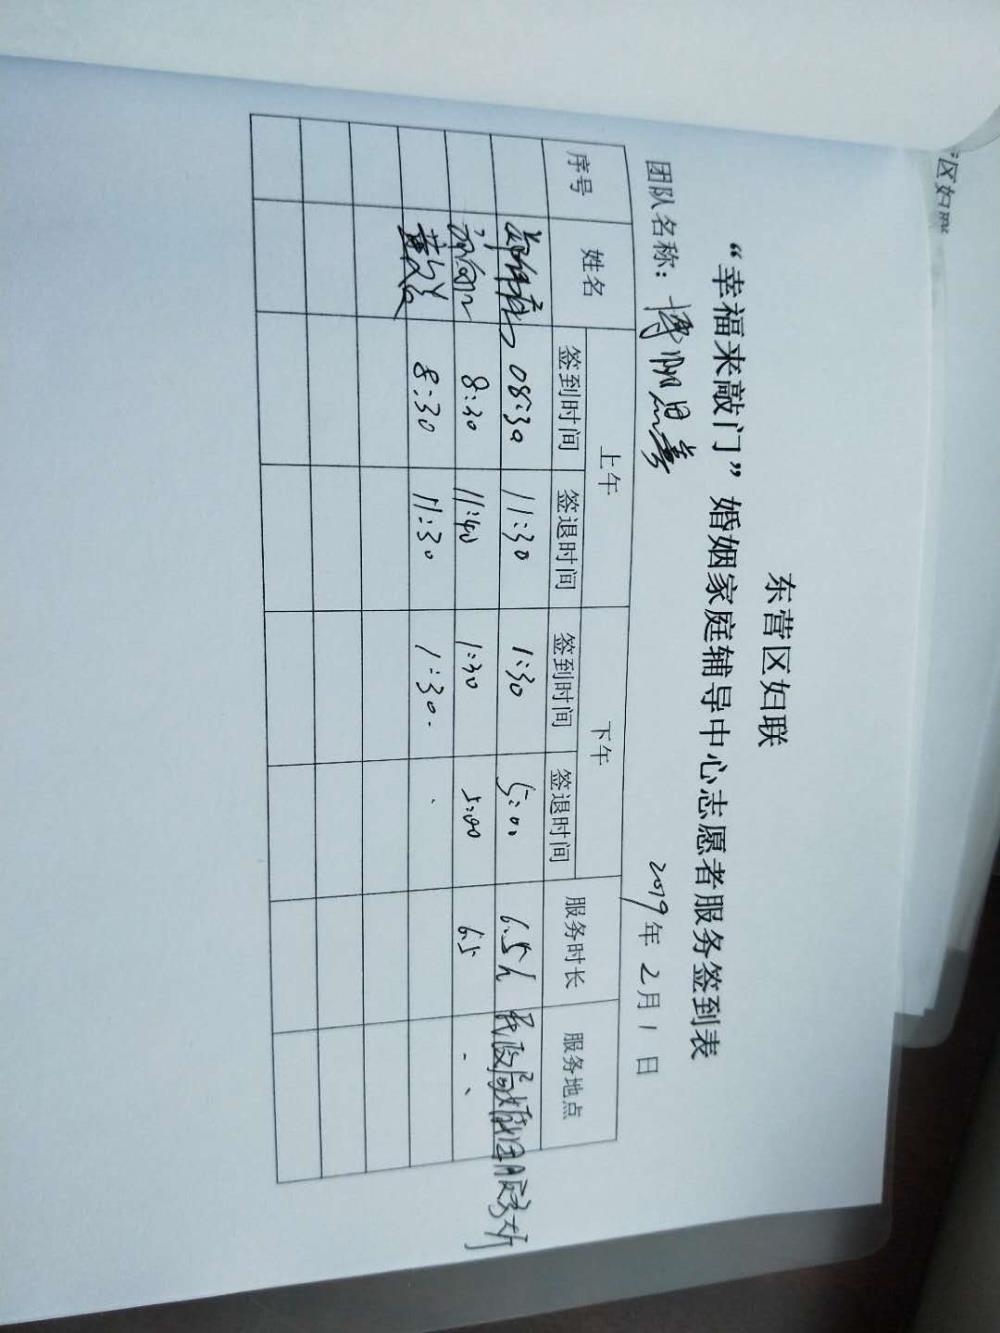 区妇联
东营区妇联
“幸福来敲门”婚姻家庭辅导中心志愿者服务签到表
团队名称： 2019年2月1日
序号 姓名 上午 下午 服务时长 服务地点
签到时间 签退时间 签到时间 签退时间
08:30 11:30 1:30 5:00 6.5h 民政局婚姻
8:30 11:40 1:30 5:00 6.5
8:30 11:30 1:30.